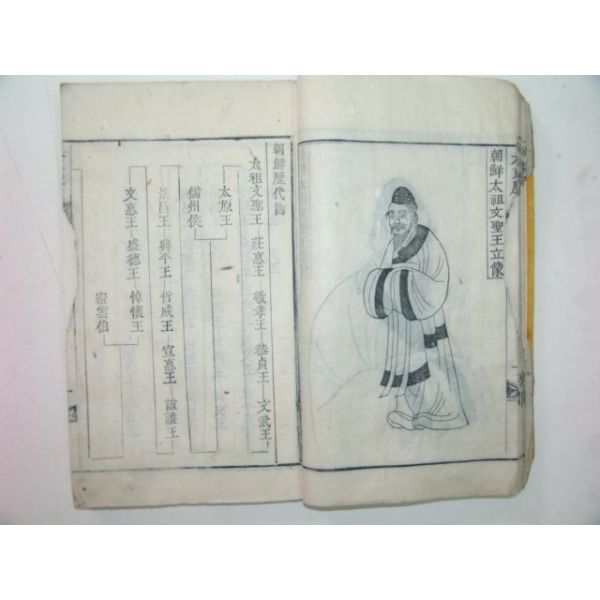 朝鮮太祖文聖王立像
朝鮮歷代圖
太祖文聖王 莊惠王 敬孝王 恭貞王 文武王
太原王
儒州侯
景昌王 興平王 哲威王 宣惠王 誼讓王
文惠王 盛德王 悼懷王
密雲伯